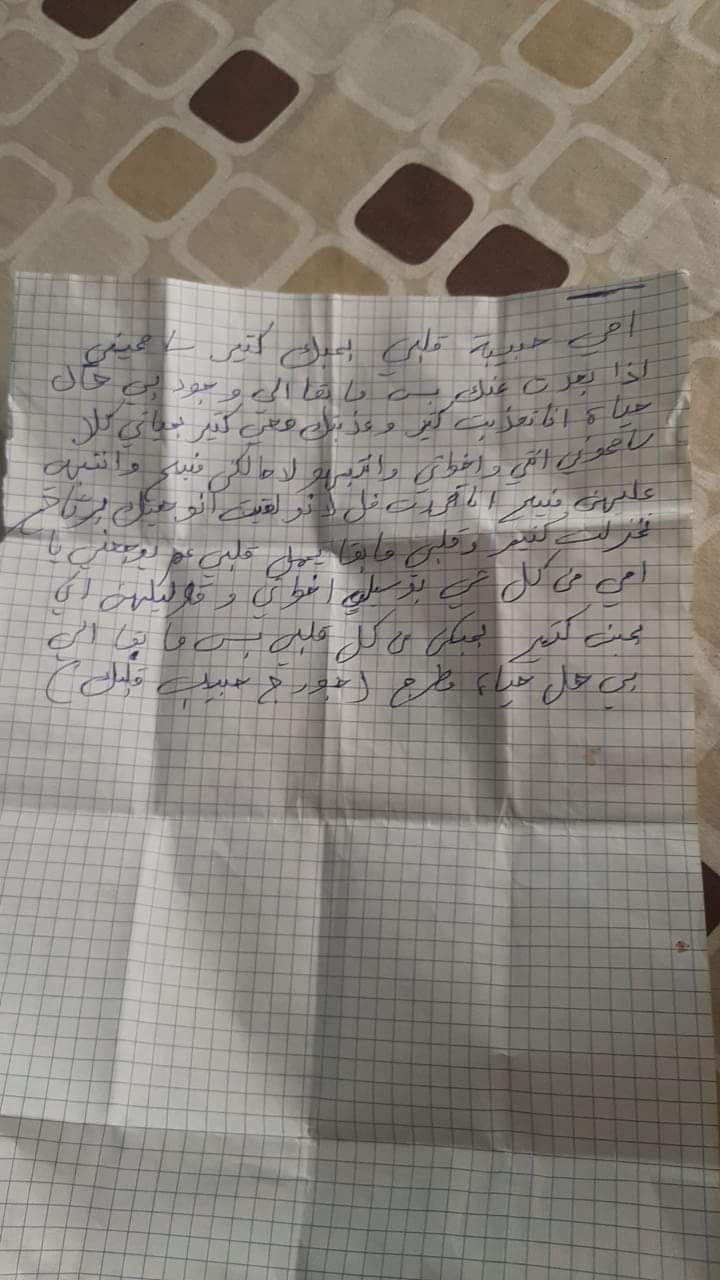 امي حبيبة قلبي بحبك كتير سامحيني
اذا بعدت عنك بس ما بقا الي وجود بي هال
حياة انا تعذبت كتير وعذبتك معي كتير بحياتي كلا
سامحوني انتي واخواتي وانتبهو لا حالكن منيح وانتبهه
عليهن منيح انا قررت فل لانو لقيت انو هيك برتاح
كتير وقلبي ما بقا يحمل قلبي عم يوجعني يا
امي من كل شي بوسيلي اخواتي وقوليلهن اني
بحبن كتير بحبكن من كل قلبي بس ما بقا الي
بي هل حياة مطرح (جورج حبيب قلبك)